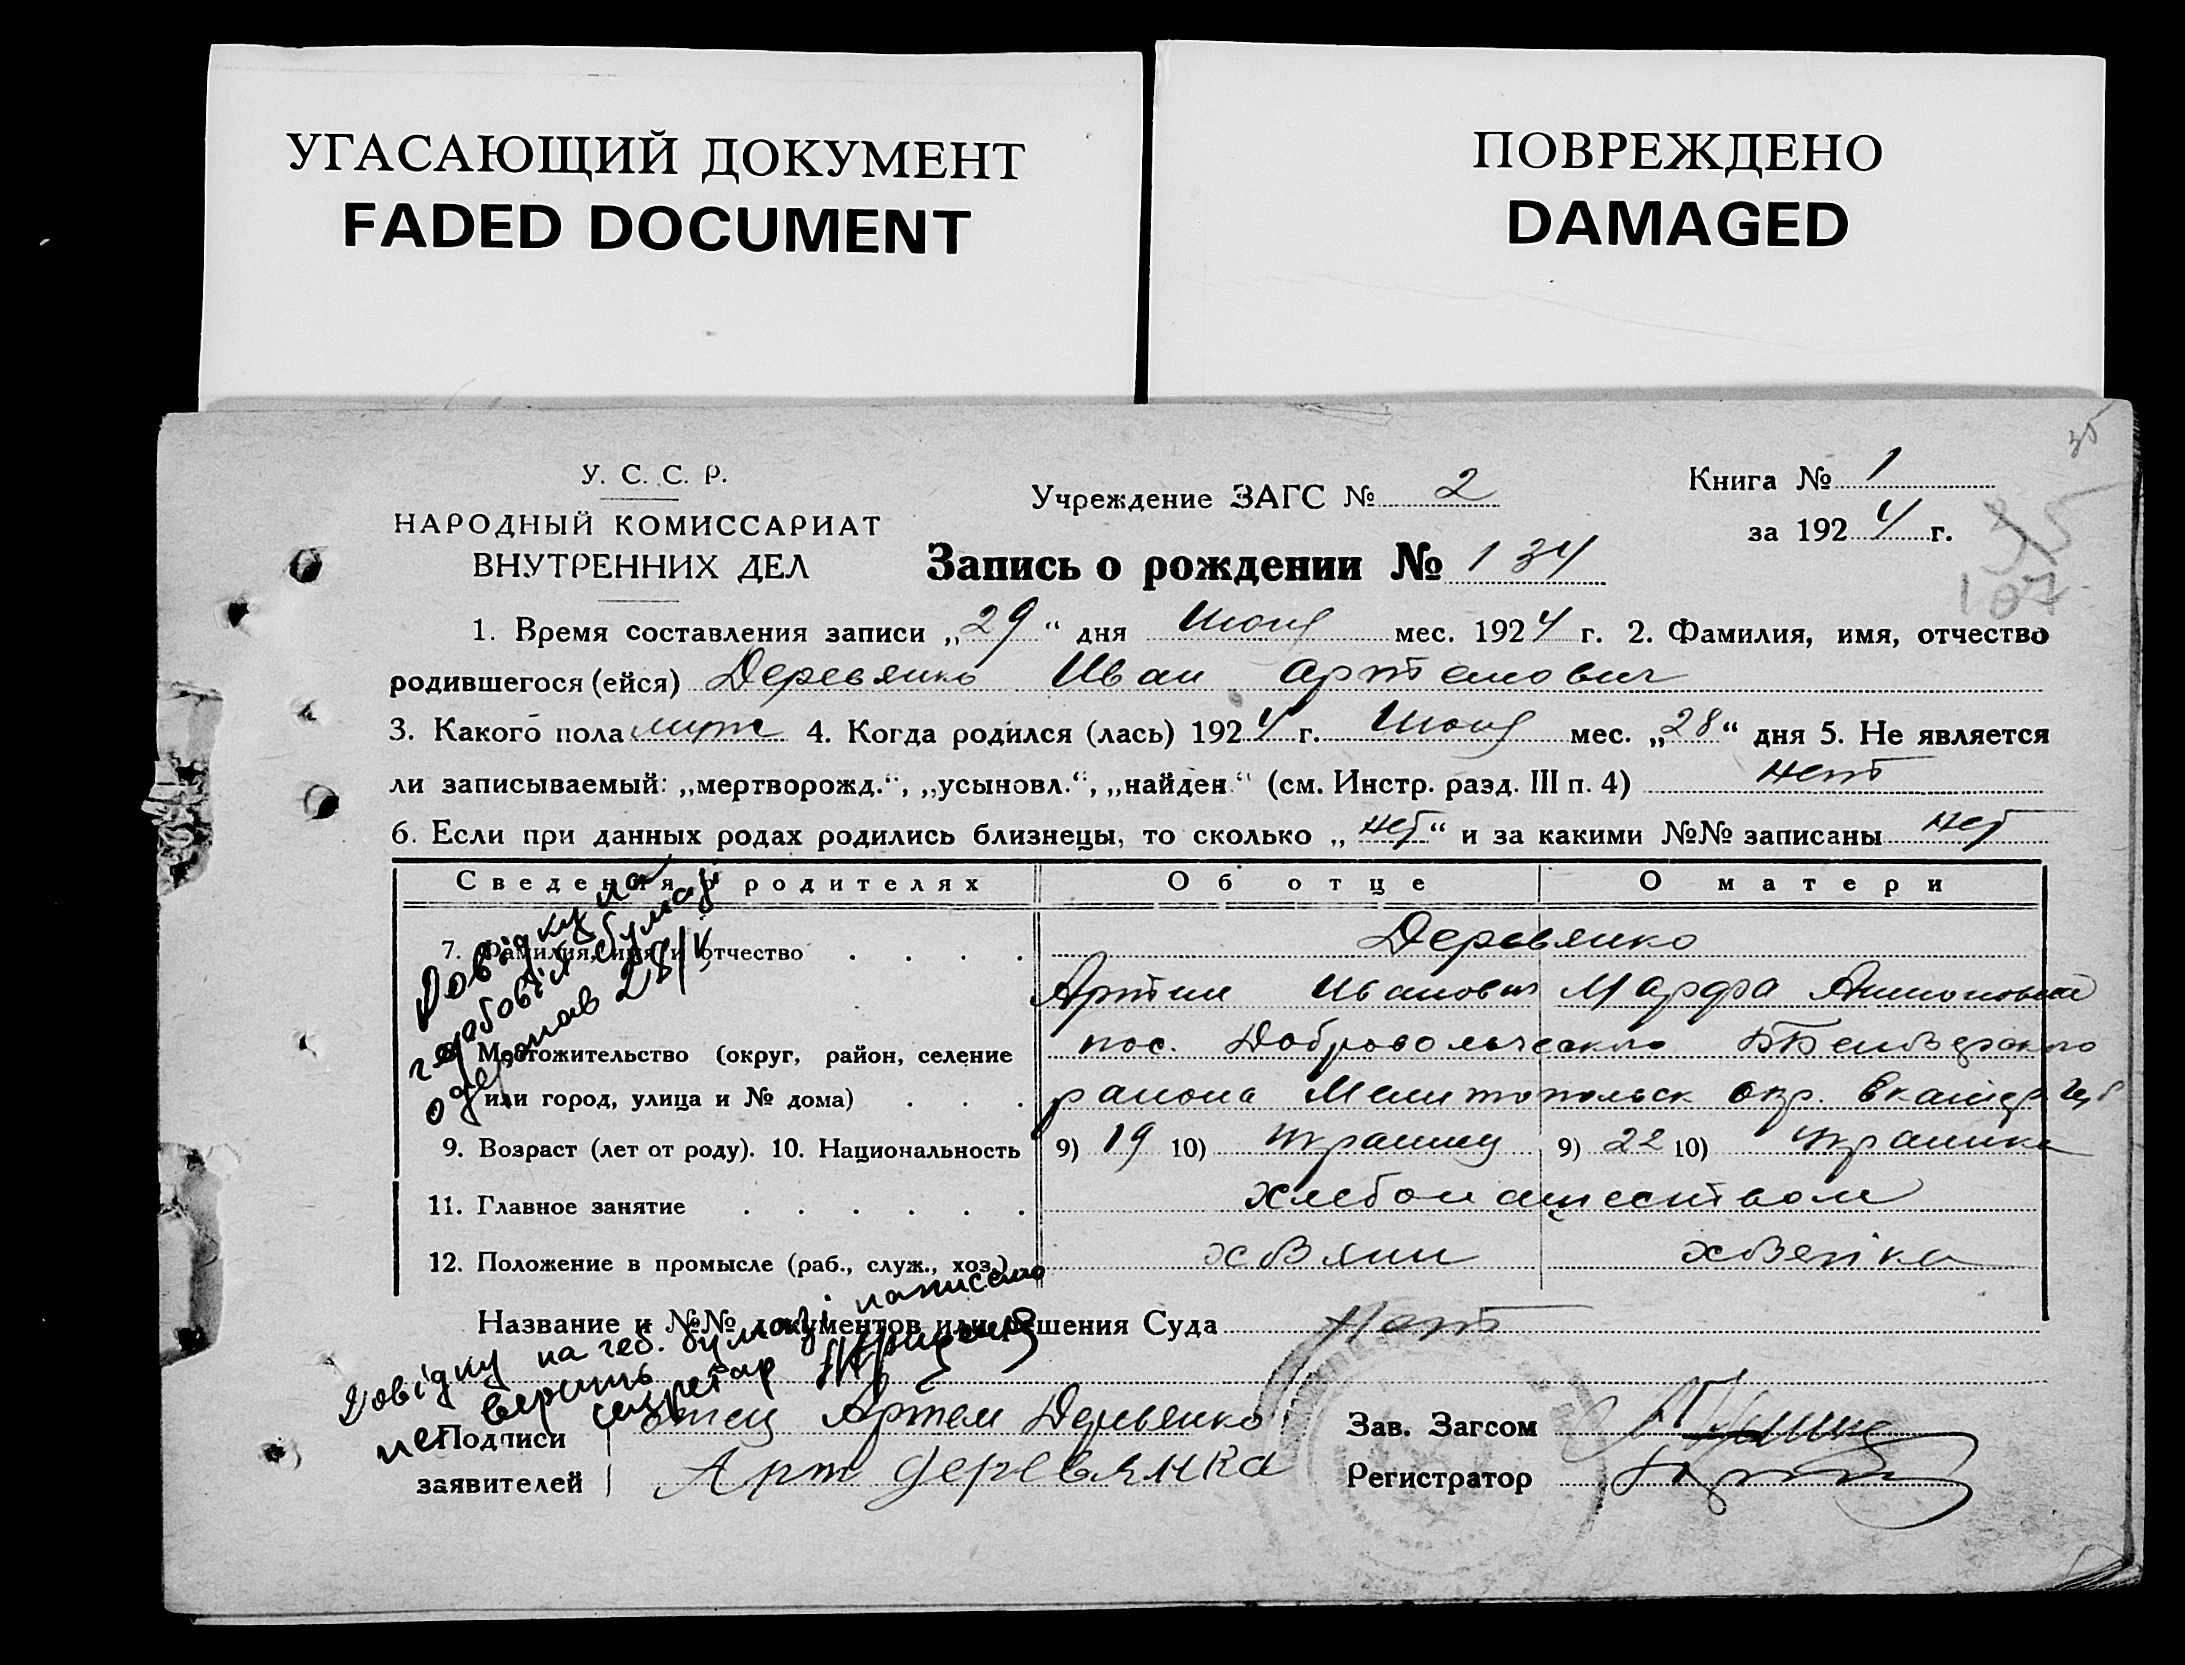 УГАСАЮЩИЙ ДОКУМЕНТ
FADED DOCUMENT
ПОВРЕЖДЕНО
DAMAGED
35
У. С. С. Р.
НАРОДНЫЙ КОМИССАРИАТ
ВНУТРЕННИХ ДЕЛ
Учреждение ЗАГС № 2
Книга № 1
за 1924 г.
107
Запись о рождении № 134
1. Время составления записи „29“ дня Июня мес. 1924 г. 2. Фамилия, имя, отчество
родившегося (ейся) Деревянко Иван Артемович
3. Какого пола муж 4. Когда родился (лась) 1924 г. Июня мес. „28“ дня 5. Не является
ли записываемый: „мертворожд.“, „усыновл.“, „найден.“ (см. Инстр. разд. III п. 4) нет
6. Если при данных родах родились близнецы, то сколько „нет“ и за какими №№ записаны нет
Сведения о родителях Об отце О матери
7. Фамилия, имя и отчество Деревянко
Артем Иванович Марфа
8. Местожительство (округ, район, селение пос. Добровольческого
или город, улица и № дома) района Мелитопольск окр.
9. Возраст (лет от роду). 10. Национальность 9) 19 10) украинец 9) 22 10) украинка
11. Главное занятие хлебопашеством
12. Положение в промысле (раб., служ., хоз.) хозяин хозяйка
Название и №№ документов или решения Суда Нет
Довідку на
одержав
Довідку на геб. бумазі написано
не вернть секретар
Подписи
заявителей
отец Артем Деревянко
Арт деревянка
Зав. Загсом
Регистратор